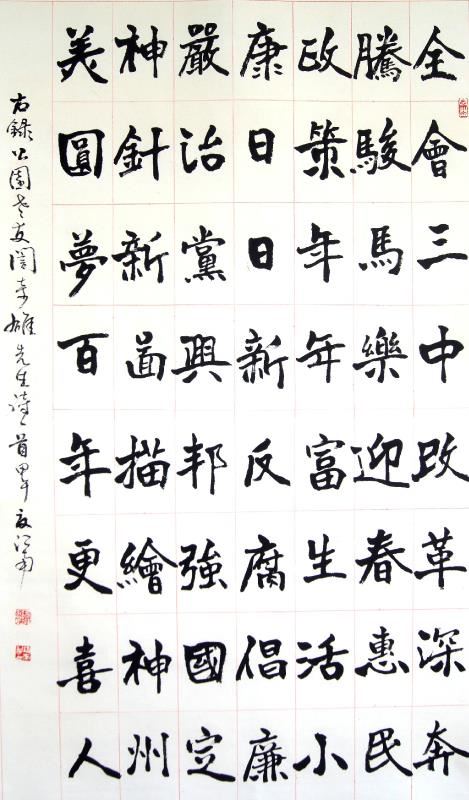 全會三中改革深奔
騰駿馬樂迎春惠民
政策年年富生活小
康日日新反腐倡廉
嚴治黨興邦強國定
神針新啚描繪神州
美圓夢百年更喜人
右錄公園老友雄先生詩一首甲午